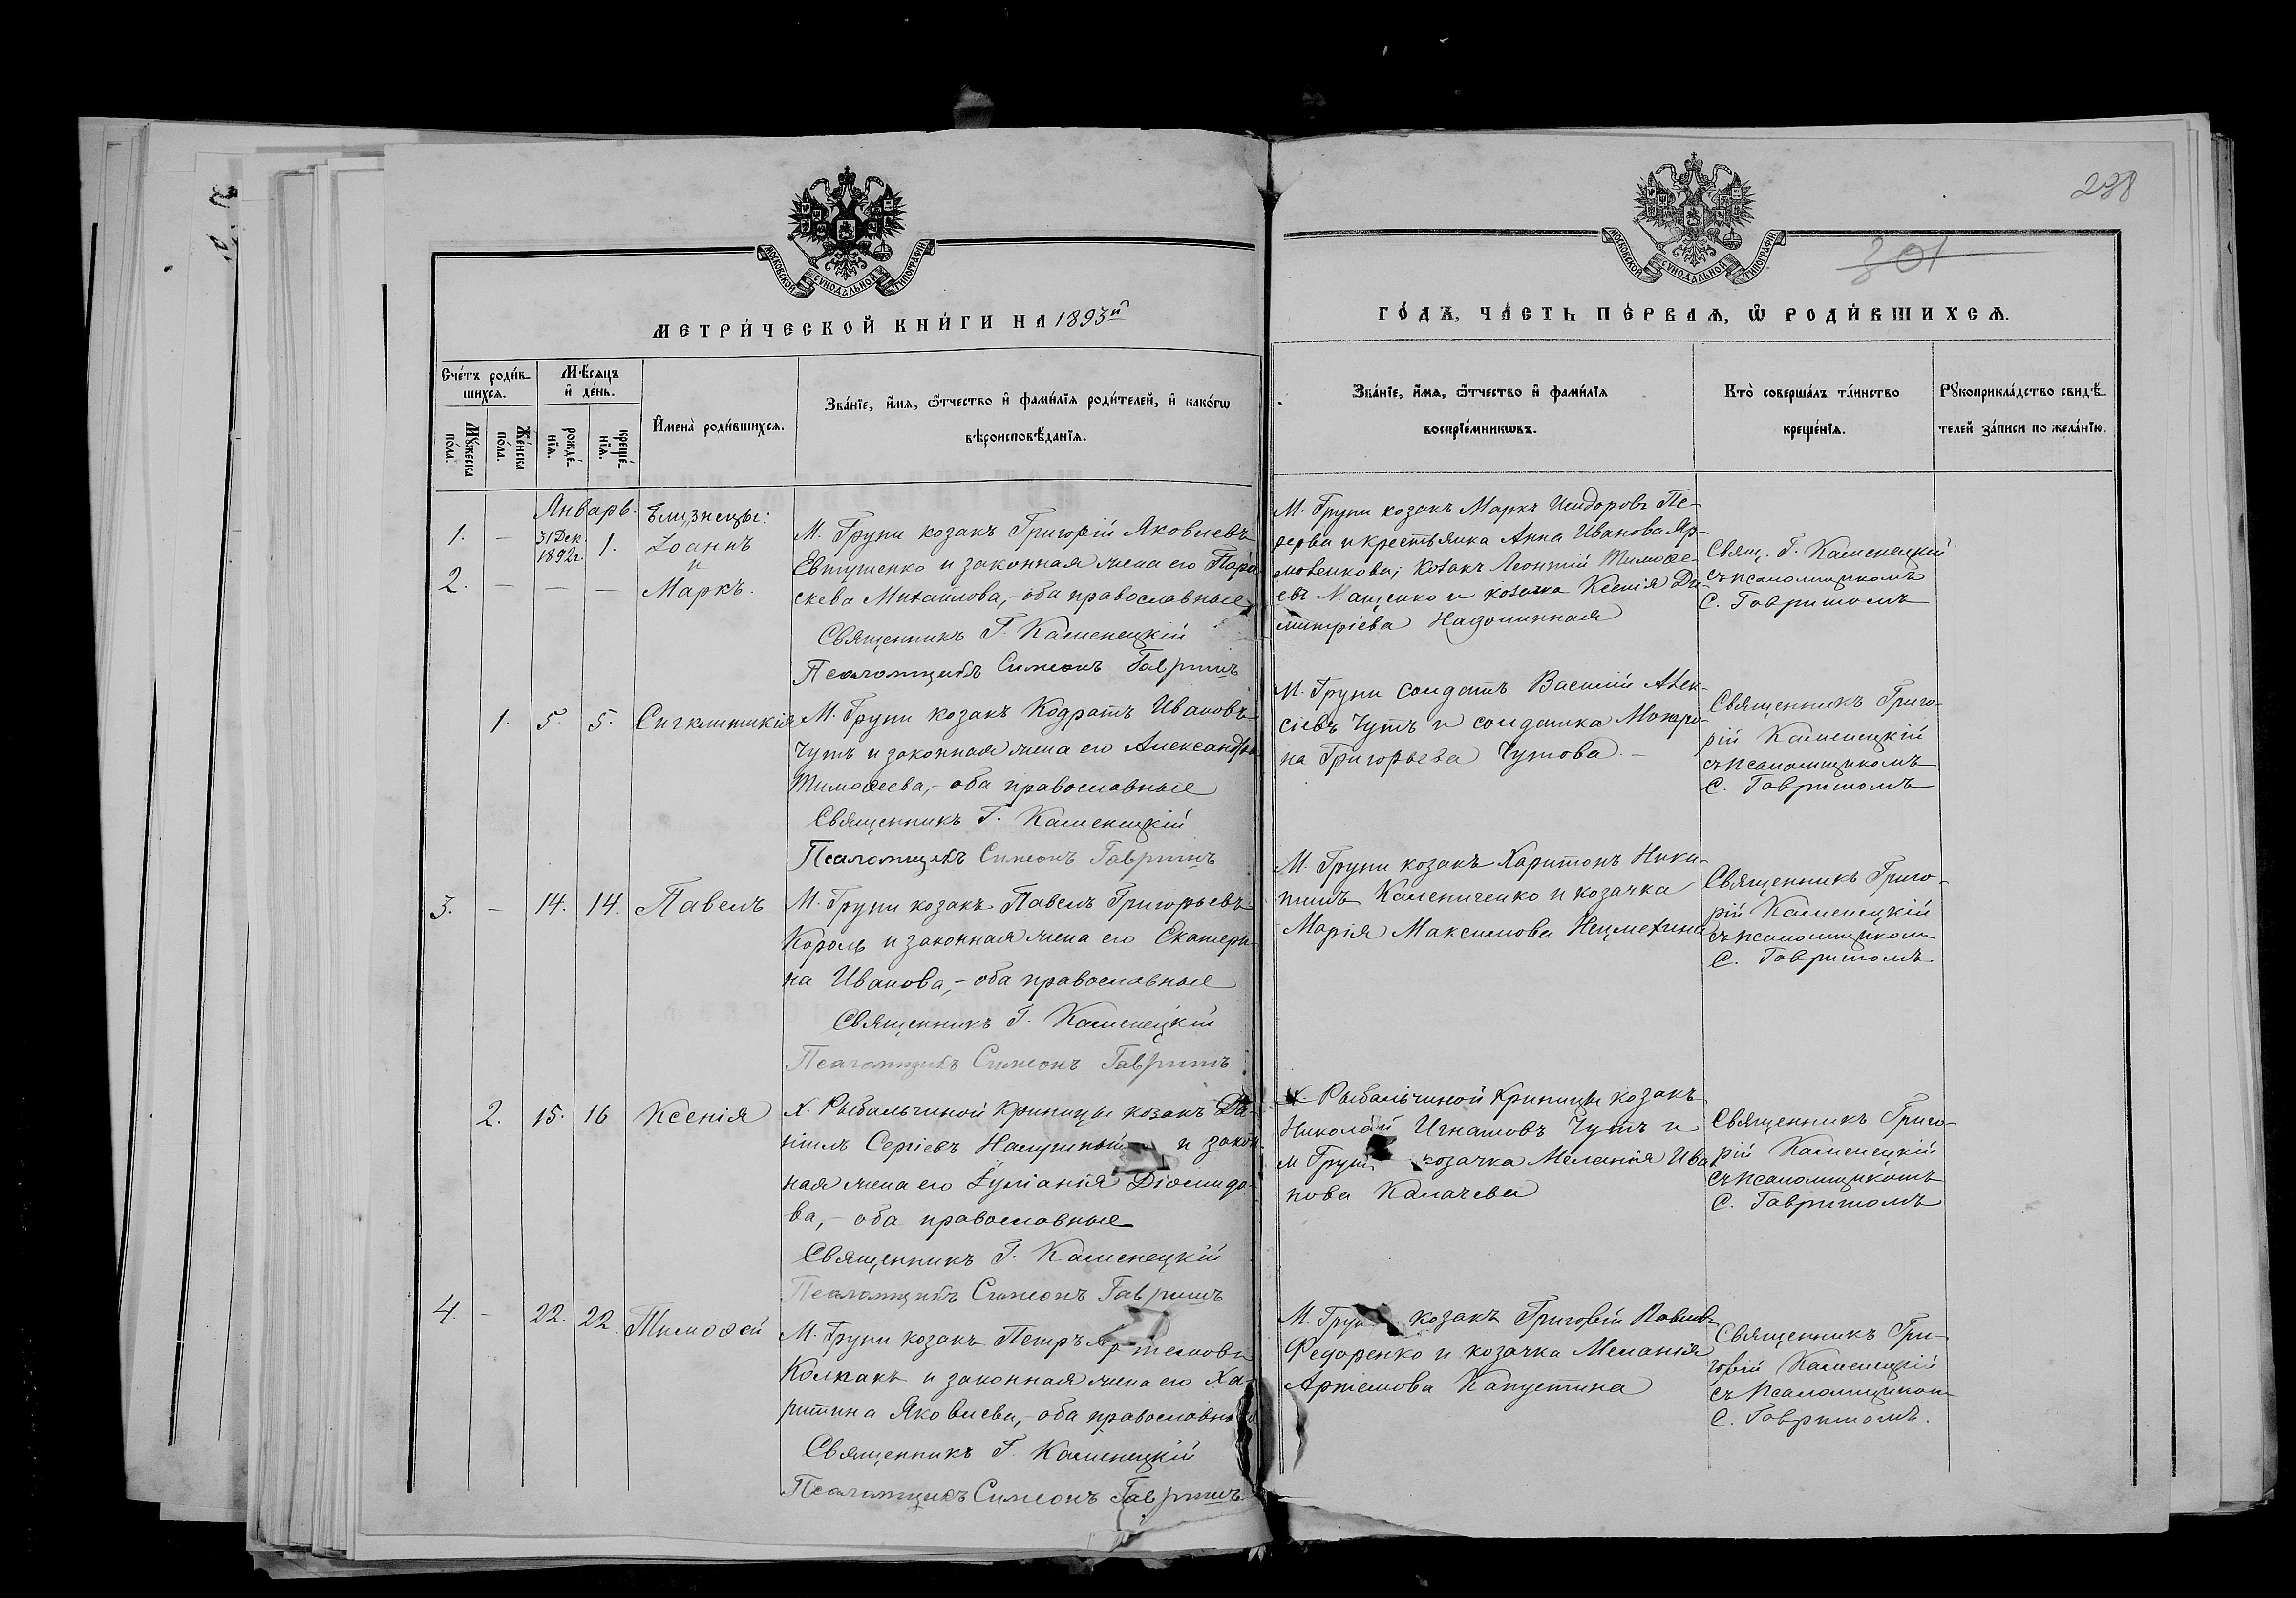 238
301
МОСКОВСКОЙ СѴНОДАЛЬНОЙ ТИПОГРАФІИ
МОСКОВСКОЙ СѴНОДАЛЬНОЙ ТИПОГРАФІИ
МЕТРИ́ЧЕСКОЙ КНИ́ГИ НА 1893й
ГО́ДЪ, ЧА́СТЬ ПЕ́РВАЯ, Ѽ РОДИ́ВШИХСЯ.
Сче́тъ роди́в-
шихся.
Мꙋ́жеска по́ла.
Же́нска по́ла.
Мѣ́сяцъ
и҆ де́нь.
рожде́-
нїя.
креще́-
нїя.
И҆мена̀ роди́вшихся.
Зва́нїе, и҆́мя, ѻ҆́тчество и҆ фами́лїя роди́телей, и҆ како́гѡ
вѣроисповѣ́данїя.
Зва́нїе, и҆́мя, ѻ҆́тчество и҆ фами́лїя
воспрїе́мникѡвъ.
Кто̀ соверша́лъ та́инство
креще́нїя.
Рꙋкоприкла́дство свидѣ́-
телей за́писи по жела́нїю.
Январь.
1. - 31 Дек. 1892г. 1.
2. - - -
Близнецы:
Іоаннъ
и
Маркъ.
М. Груни козакъ Григорій Яковлевъ
Евтушенко и законная жена его Пара
скева Михаилова,- оба православные
Священникъ Г. Каменецкій
Псаломщикъ Симеонъ Гавришъ
М. Груни козакъ Маркъ Исидоровъ Пе-
рерва и крестьянка Анна Иванова Яр-
мовенкова; козакъ Леонтій Тимоѳе-
евъ и козачка Ксенія Ди-
митріева
Свящ. Г. Каменецкій
съ псаломщикомъ
С. Гавришомъ
1. 5. 5. Сигклитикія
М. Груни козакъ Кодратъ Ивановъ
Чутъ и законная жена его Александра
Тимоѳеева,- оба православные
Священникъ Г. Каменецкій
Псаломщикъ Симеонъ Гавришъ
М. Груни солдатъ Василій Алек-
сіевъ Чутъ и солдатка Мокри-
на Григорьева Чутова -
Священникъ Григо-
рій Каменецкій
съ псаломщикомъ
С. Гавришомъ
3. - 14. 14. Павелъ
М. Груни козакъ Павелъ Григорьевъ
Король и законная жена его Екатери-
на Иванова,- оба православные
Священникъ Г. Каменецкій
Псаломщикъ Симеонъ Гавришъ
М. Груни козакъ Харитонъ Ники-
тинъ Калениченко и козачка
Марія Максимова
Священникъ Григо-
рій Каменецкій
съ псаломщиком
С. Гавришомъ
2. 15. 16 Ксенія
Х. Рыбальчиной Криницы козакъ Да-
ніилъ Сергіевъ и закон-
ная жена его Іуліанія Діомидо-
ва,- оба православные
Священникъ Г. Каменецкій
Псаломщикъ Симеонъ Гавришъ
Х. Рыбальчиной Криницы козакъ
Николай Игнатовъ Чутъ и
м Груни козачка Меланія Ива
нова Калачева
Священникъ Григо-
рій Каменецкій
съ псаломщикомъ
С. Гавришомъ
4. - 22. 22. Тимоѳей
М. Груни козакъ Петръ Артемовъ
Колпакъ и законная жена его Ха-
ритина Яковлева,- оба православные
Священникъ Г. Каменецкій
Псаломщикъ Симеонъ Гавришъ
М. Груни козакъ Григорій Павловъ
Федоренко и козачка Меланія
Артемова Капустина
Священникъ Гри-
горій Каменецкій
съ псаломщиком
С. Гавришомъ.